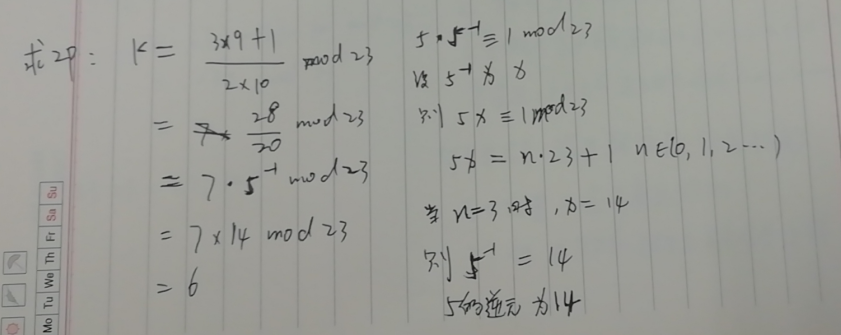 求2P: K = \frac{3×9+1}{2×10} mod 23
= \frac{28}{20} mod 23
= 7 · 5⁻¹ mod 23
= 7×14 mod 23
= 6
5 · 5⁻¹ ≡ 1 mod 23
设 5⁻¹ 为 x
则 5x ≡ 1 mod 23
5x = n·23+1 n∈(0,1,2…)
当 n=3 时, x=14
则 5⁻¹ = 14
5的逆元为14
Mo Tu We Th Fr Sa Su